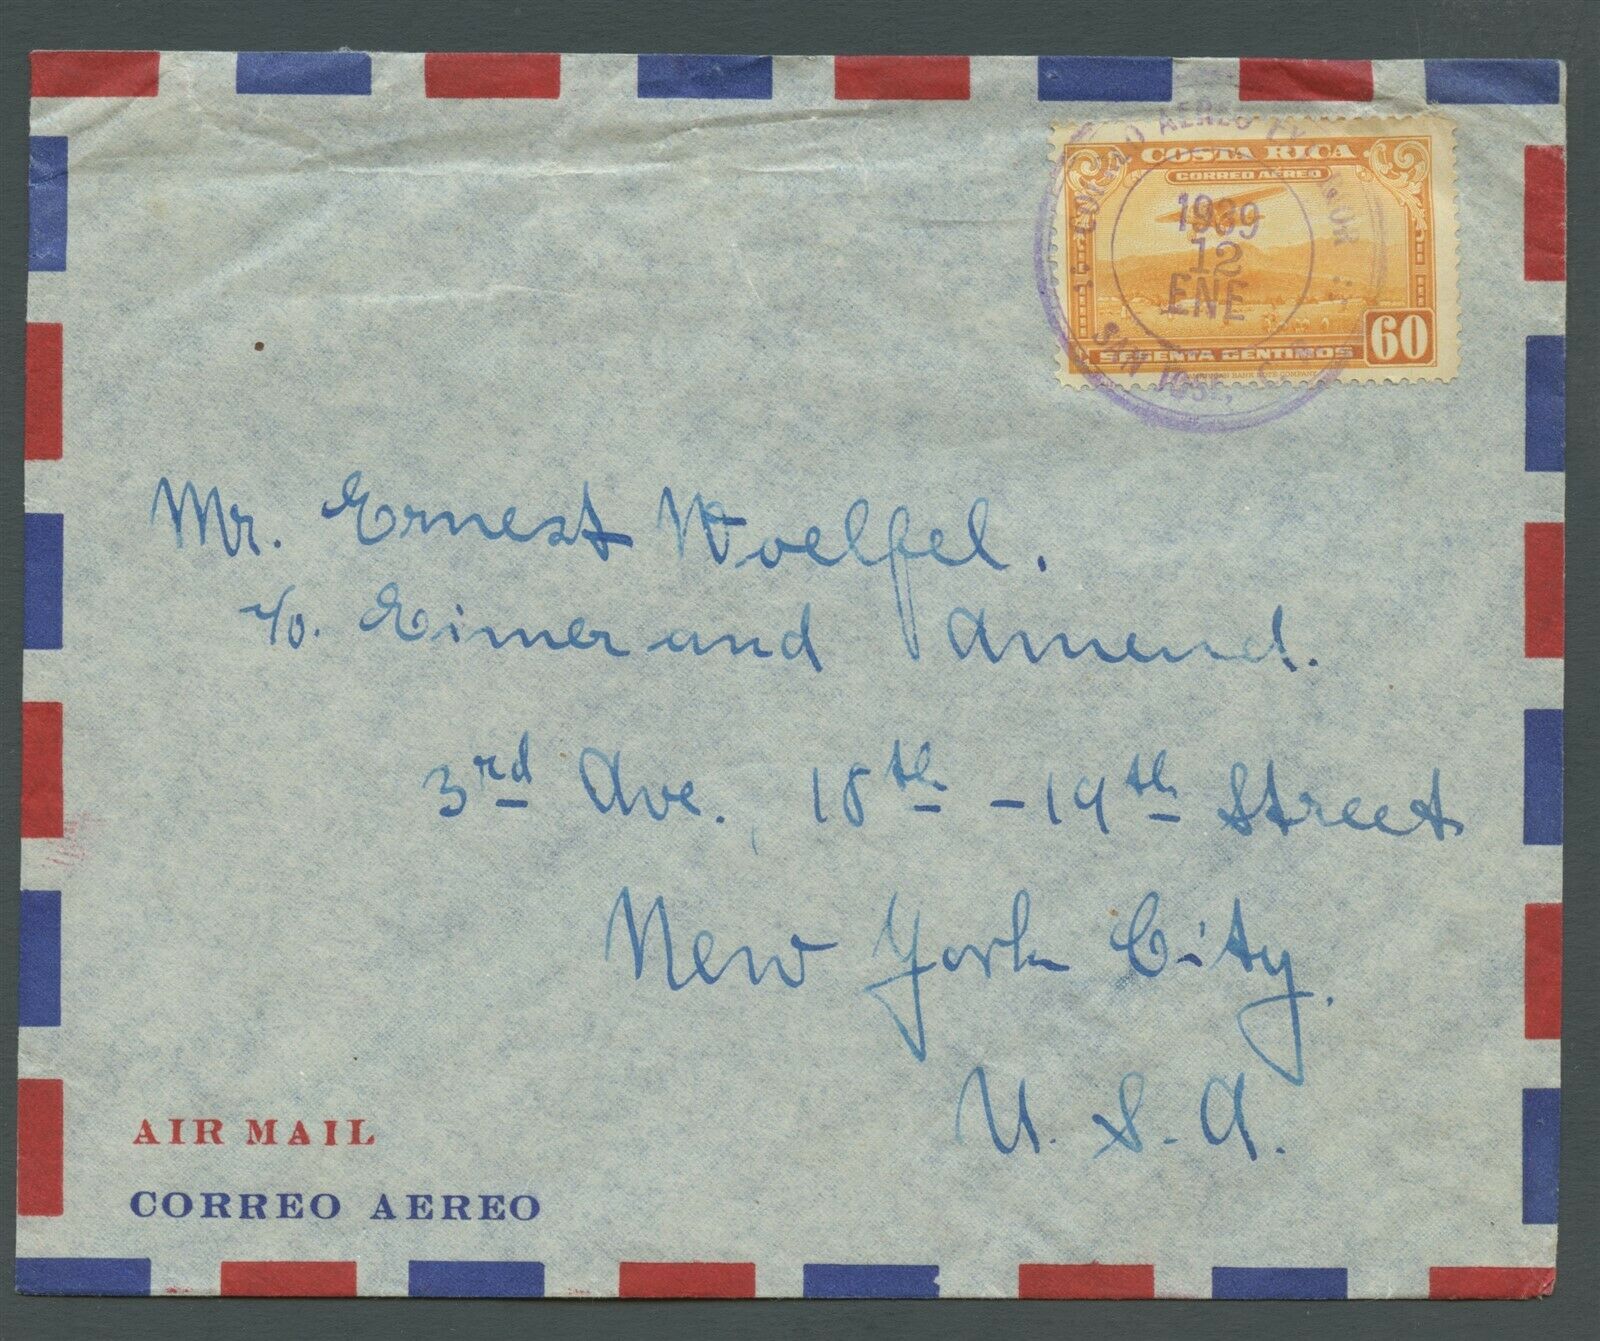 COSTA RICA
CORREO AEREO
1939
12
ENE
SESENTA CENTIMOS 60
AMERICAN BANK NOTE COMPANY
CORREO AEREO
SAN JOSE, C.
Mr. Ernest Woelfel.
c/o. Eimer and Amend.
3rd Ave., 18th - 19th Street
New York City.
U. S. A.
AIR MAIL
CORREO AEREO